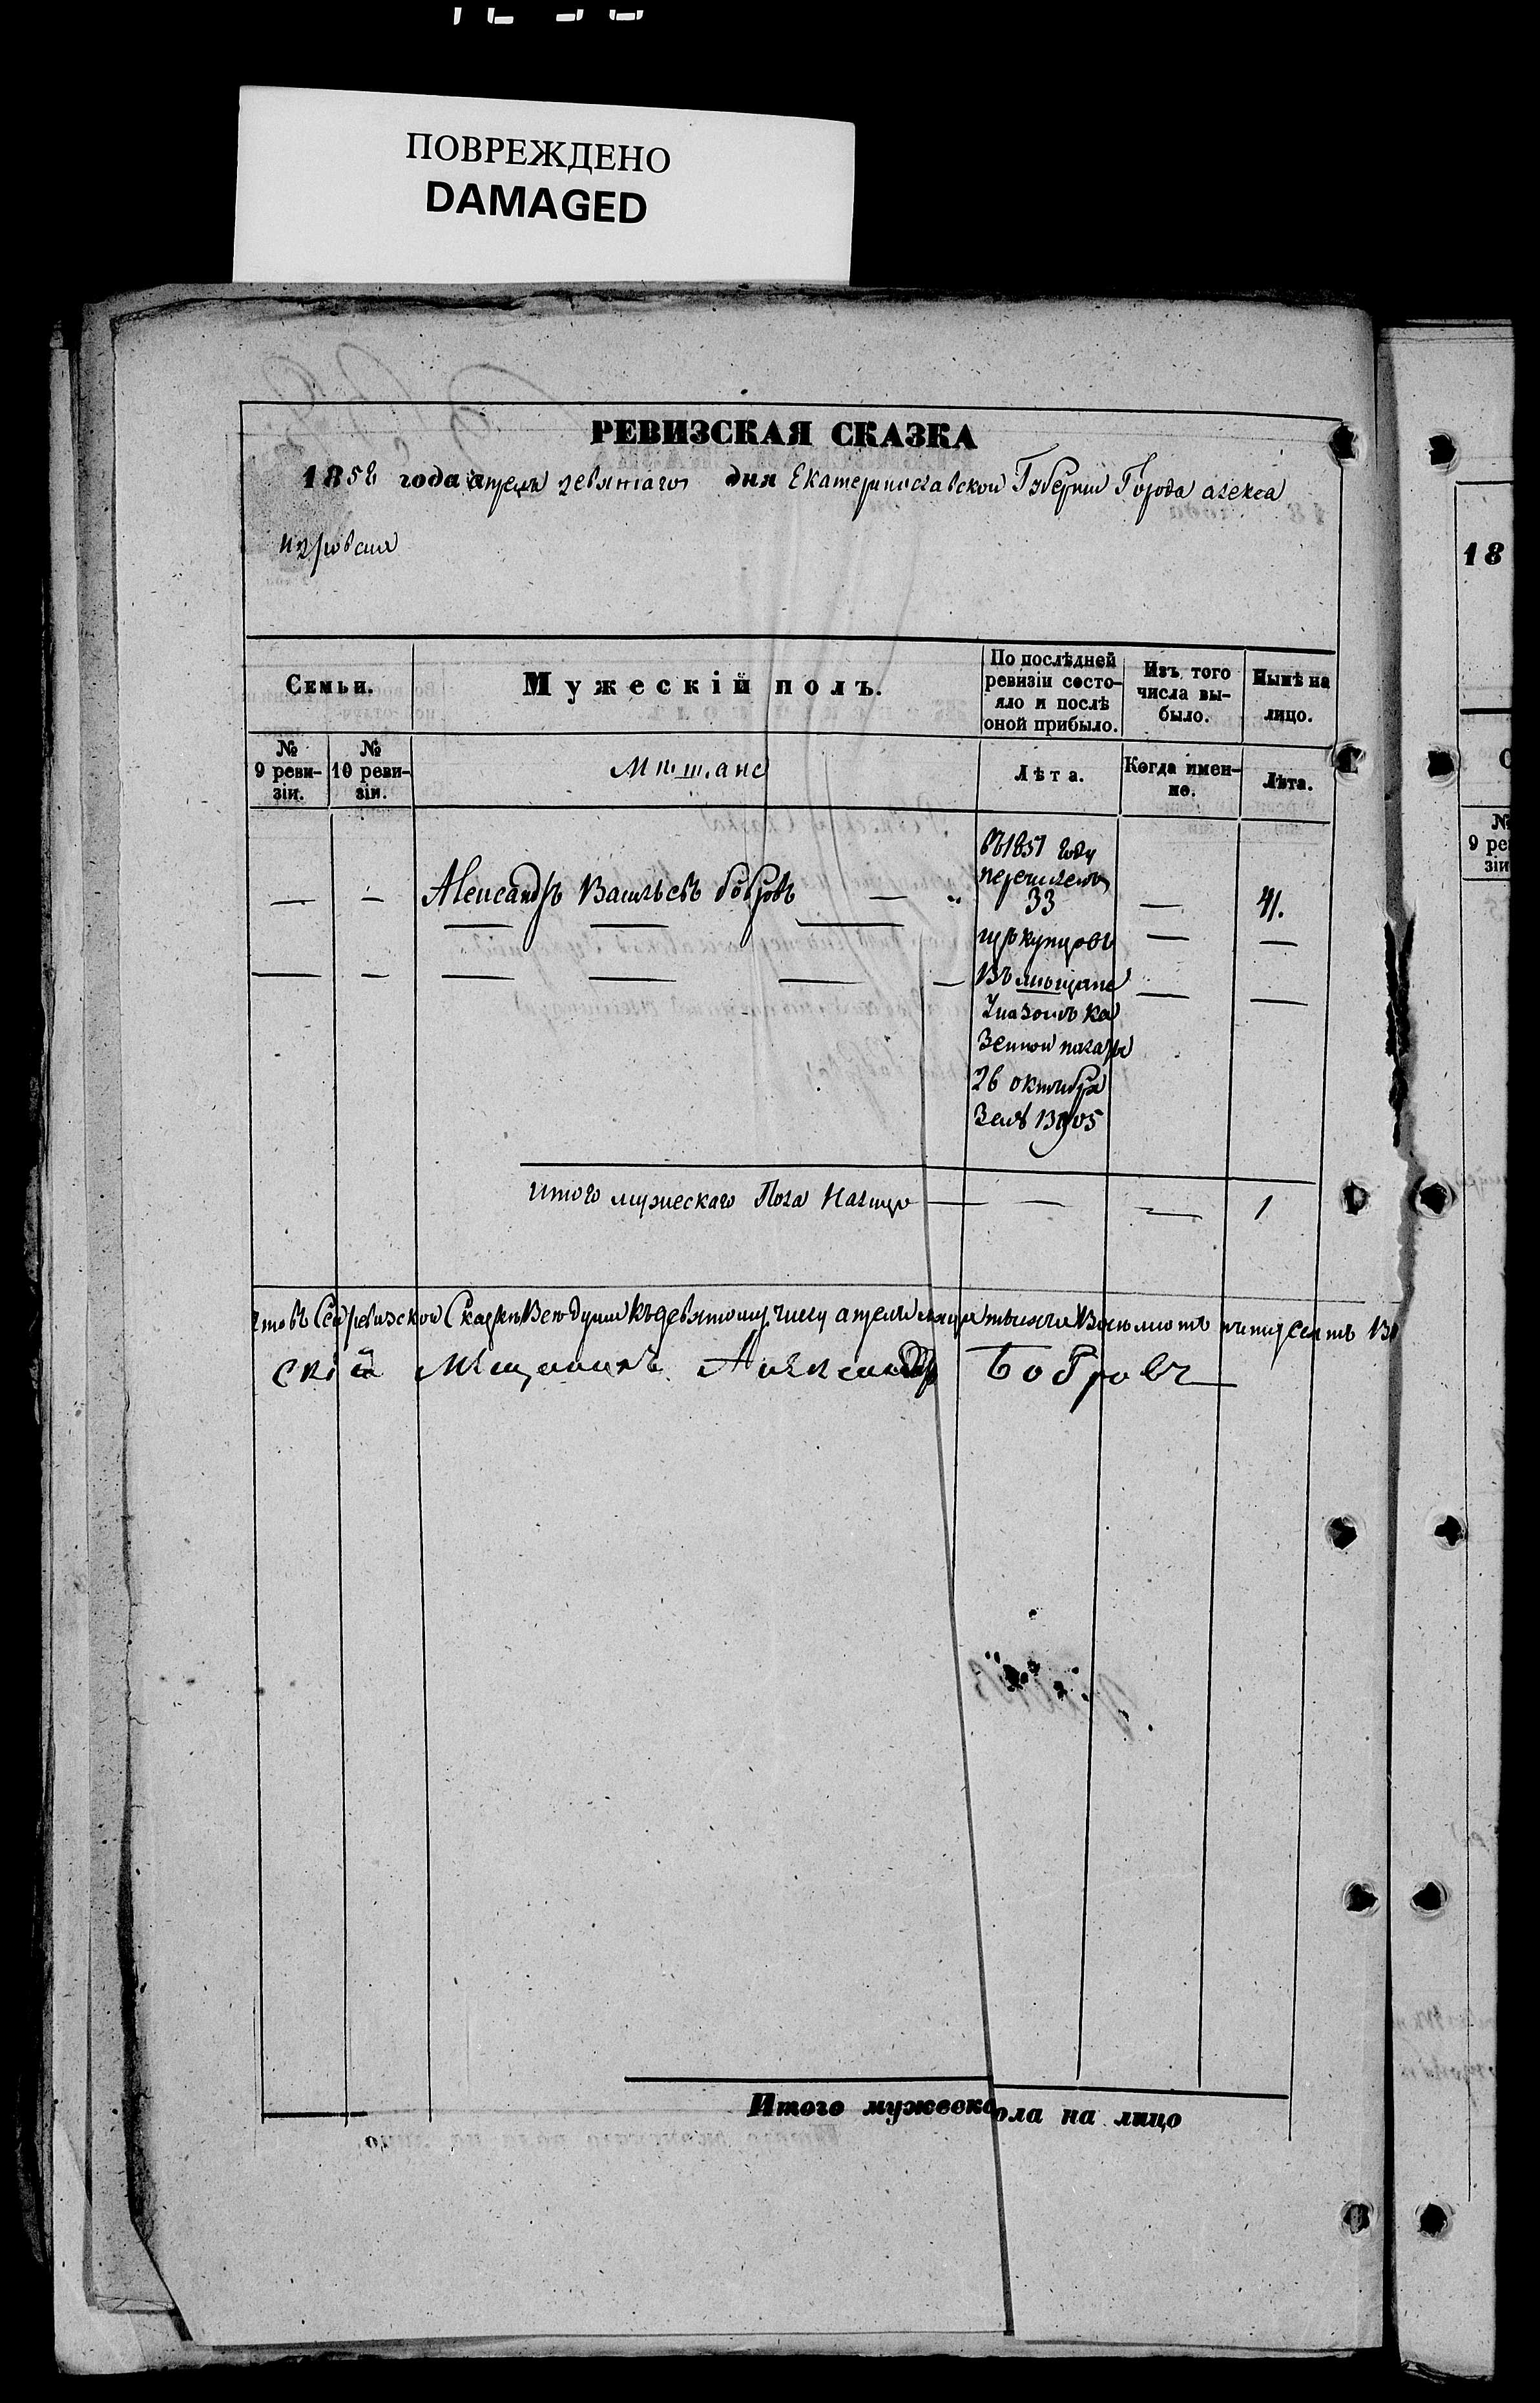 ПОВРЕЖДЕНО
DAMAGED
РЕВИЗСКАЯ СКАЗКА
1858 года апреля девятаго дня Екатеринославской Губернии Города алекса
ндровска
Семьи.
Мужескій полъ.
По послѣдней ревизіи состояло и послѣ оной прибыло.
Изъ того числа выбыло.
Нынѣ на лицо.
№ 9 ревизіи.
№ 10 ревизіи.
Мѣщане
Лѣта.
Когда именно.
Лѣта.
въ 1851 году
перечисленъ
Александръ Васильевъ бобровъ — „ 33 — 41.
купцовъ
Въ мѣщане
Указомъ ка
зенной палаты
26 октября
За № 13905
Итого мужескаго Пола Налицо — — — 1
что въ Сей ревизской Сказке Все души къ девятому числу апреля месяца тысяча Восемсотъ пятидесятъ Во
скій Мѣщанинъ Александръ Бобровъ
Итого мужеско ола на лицо
18
№
9 ре
зіи